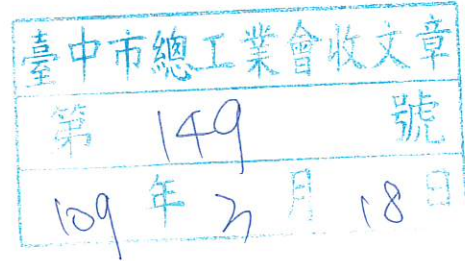 臺中市總工業會收文章
第 149 號
109 年 3 月 18 日